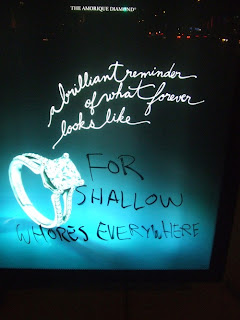 THE AMORIQUE DIAMOND®
a brilliant reminder
of what forever
looks like
FOR
SHALLOW
WHORES EVERYWHERE